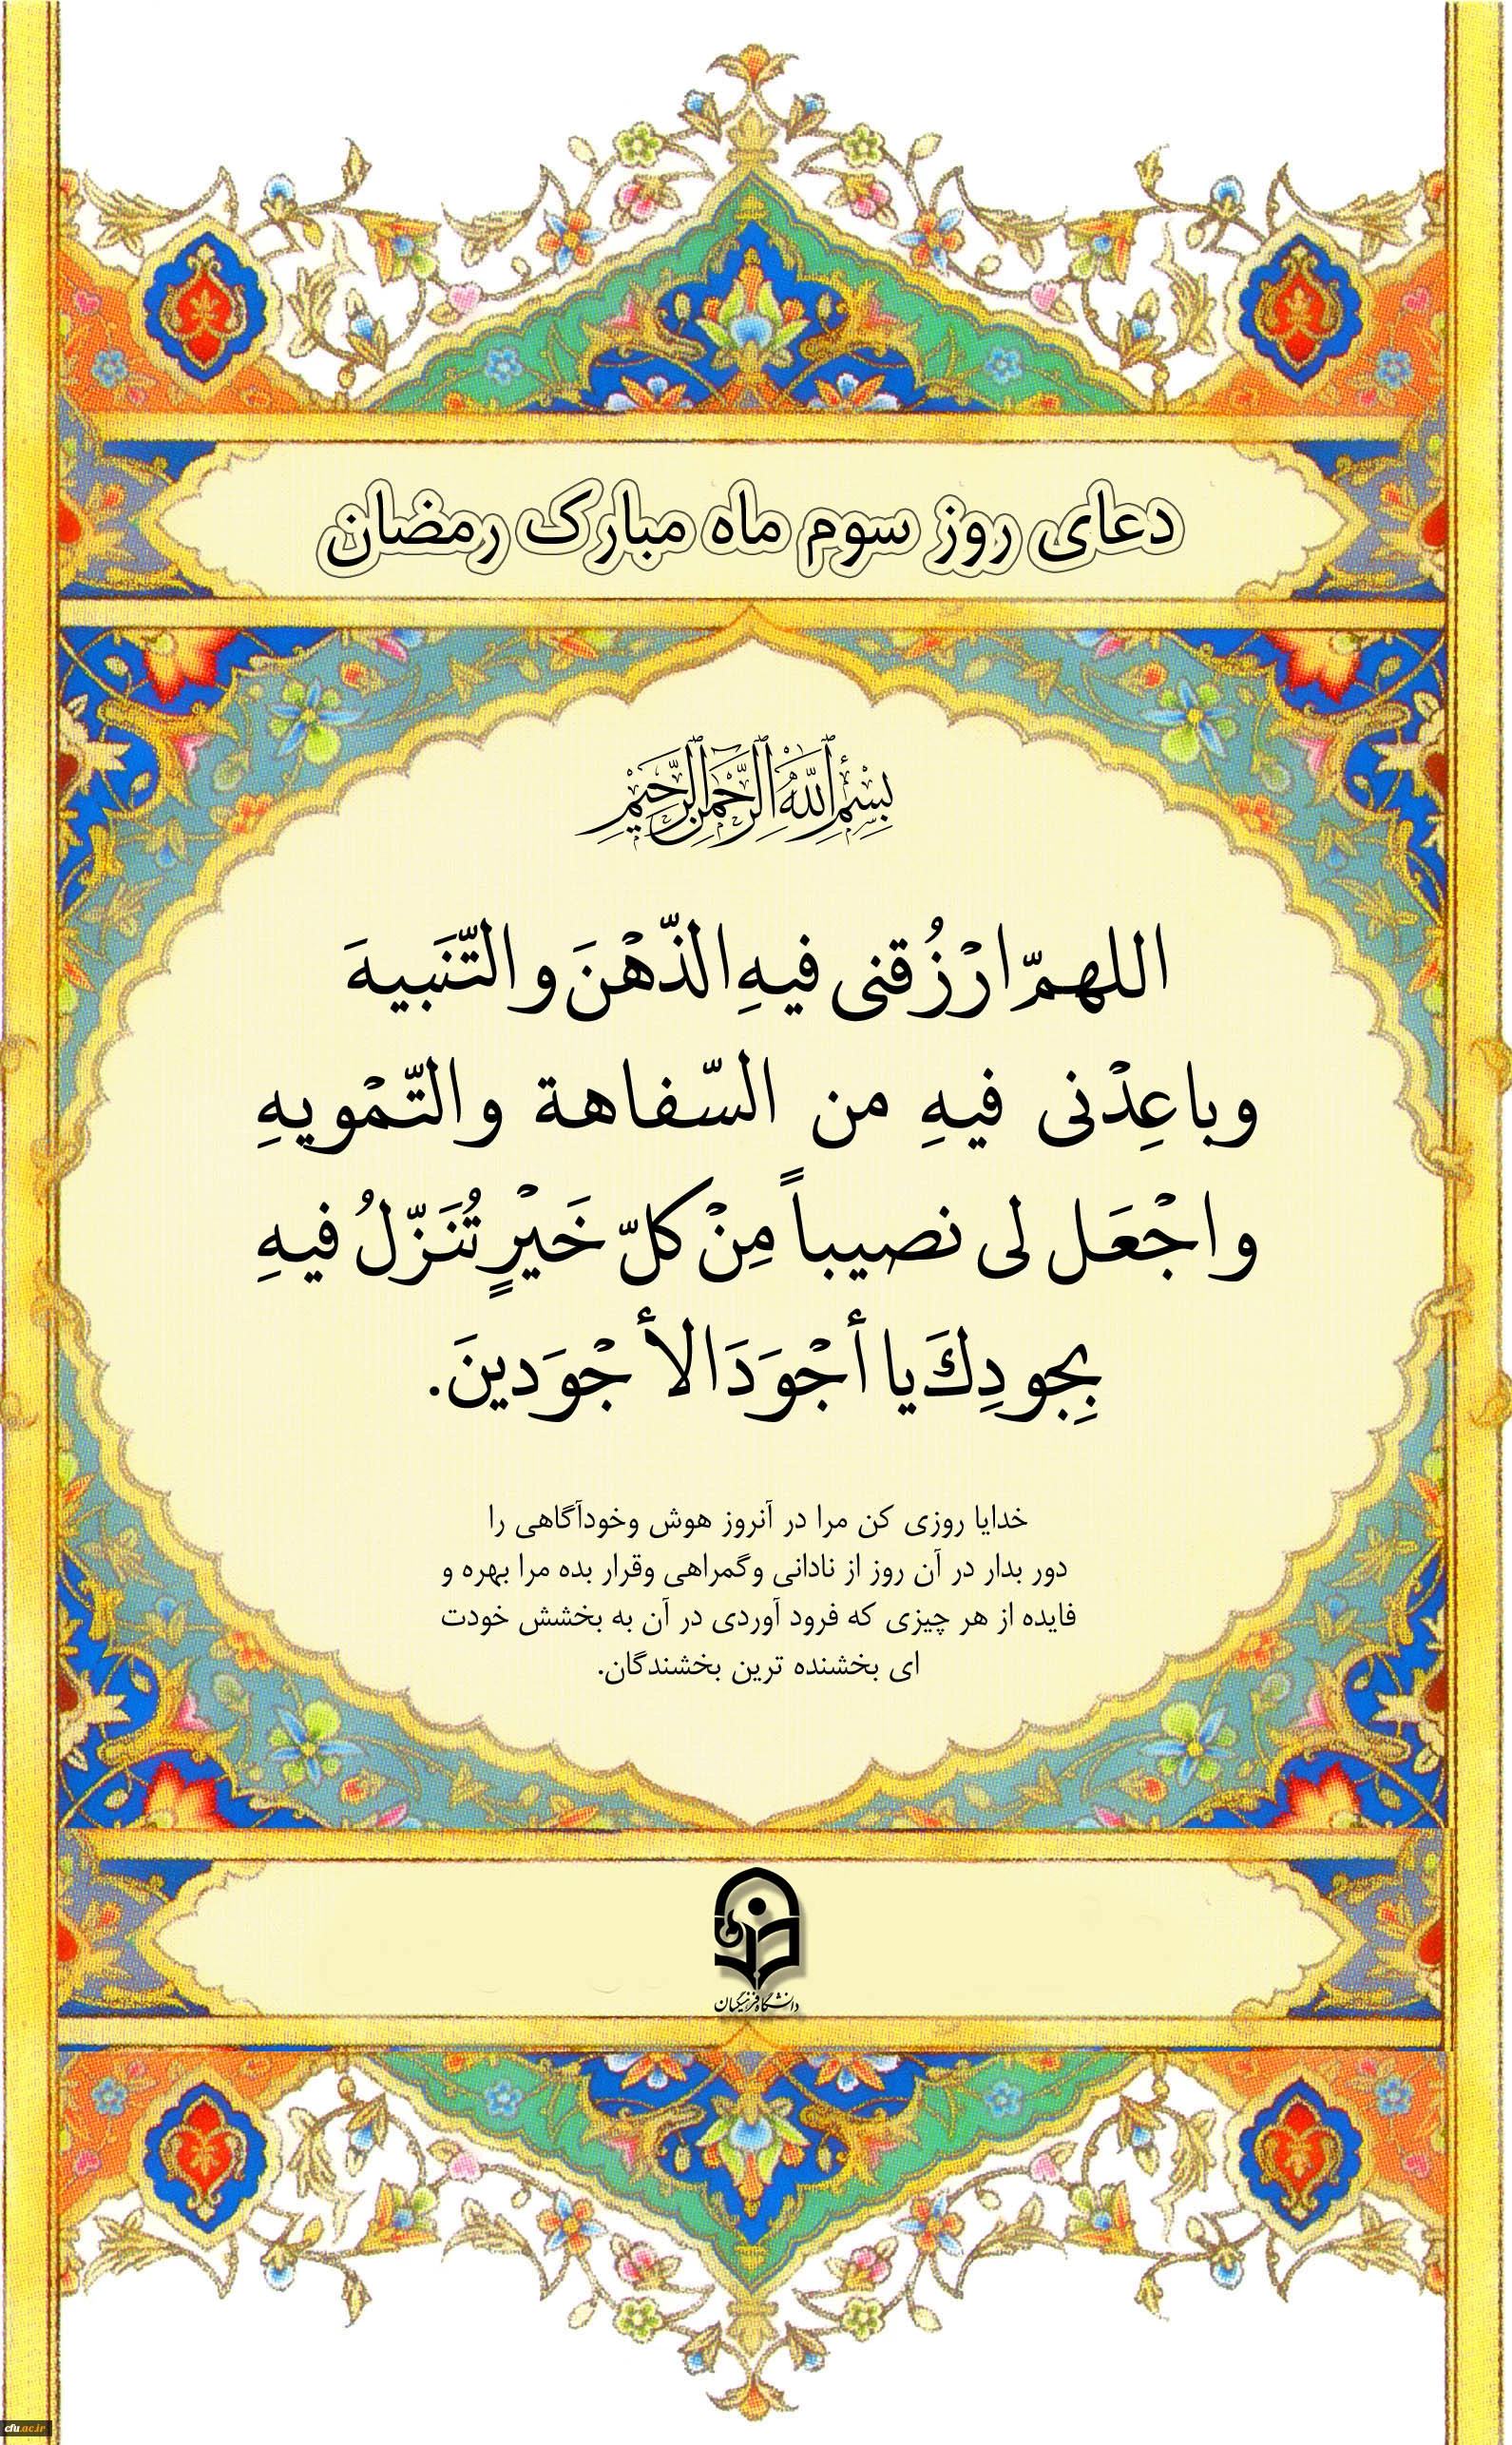 دعای روز سوم ماه مبارک رمضان
بِسْمِ اللَّهِ الرَّحْمَنِ الرَّحِيمِ
اللهمّ ارْزُقنی فیهِ الذّهْنَ والتّنَبیهَ
وباعِدْنی فیهِ من السّفاهة والتّمْویهِ
واجْعَل لی نصیباً مِنْ کلّ خَیْرٍ تُنَزّلُ فیهِ
بِجودِكَ یا أجْوَدَ الأجْوَدینَ.
خدایا روزی کن مرا در آنروز هوش وخودآگاهی را
دور بدار در آن روز از نادانی وگمراهی وقرار بده مرا بهره و
فایده از هر چیزی که فرود آوردی در آن به بخشش خودت
ای بخشنده ترین بخشندگان.
دانشگاه فرهنگیان
cfu.ac.ir